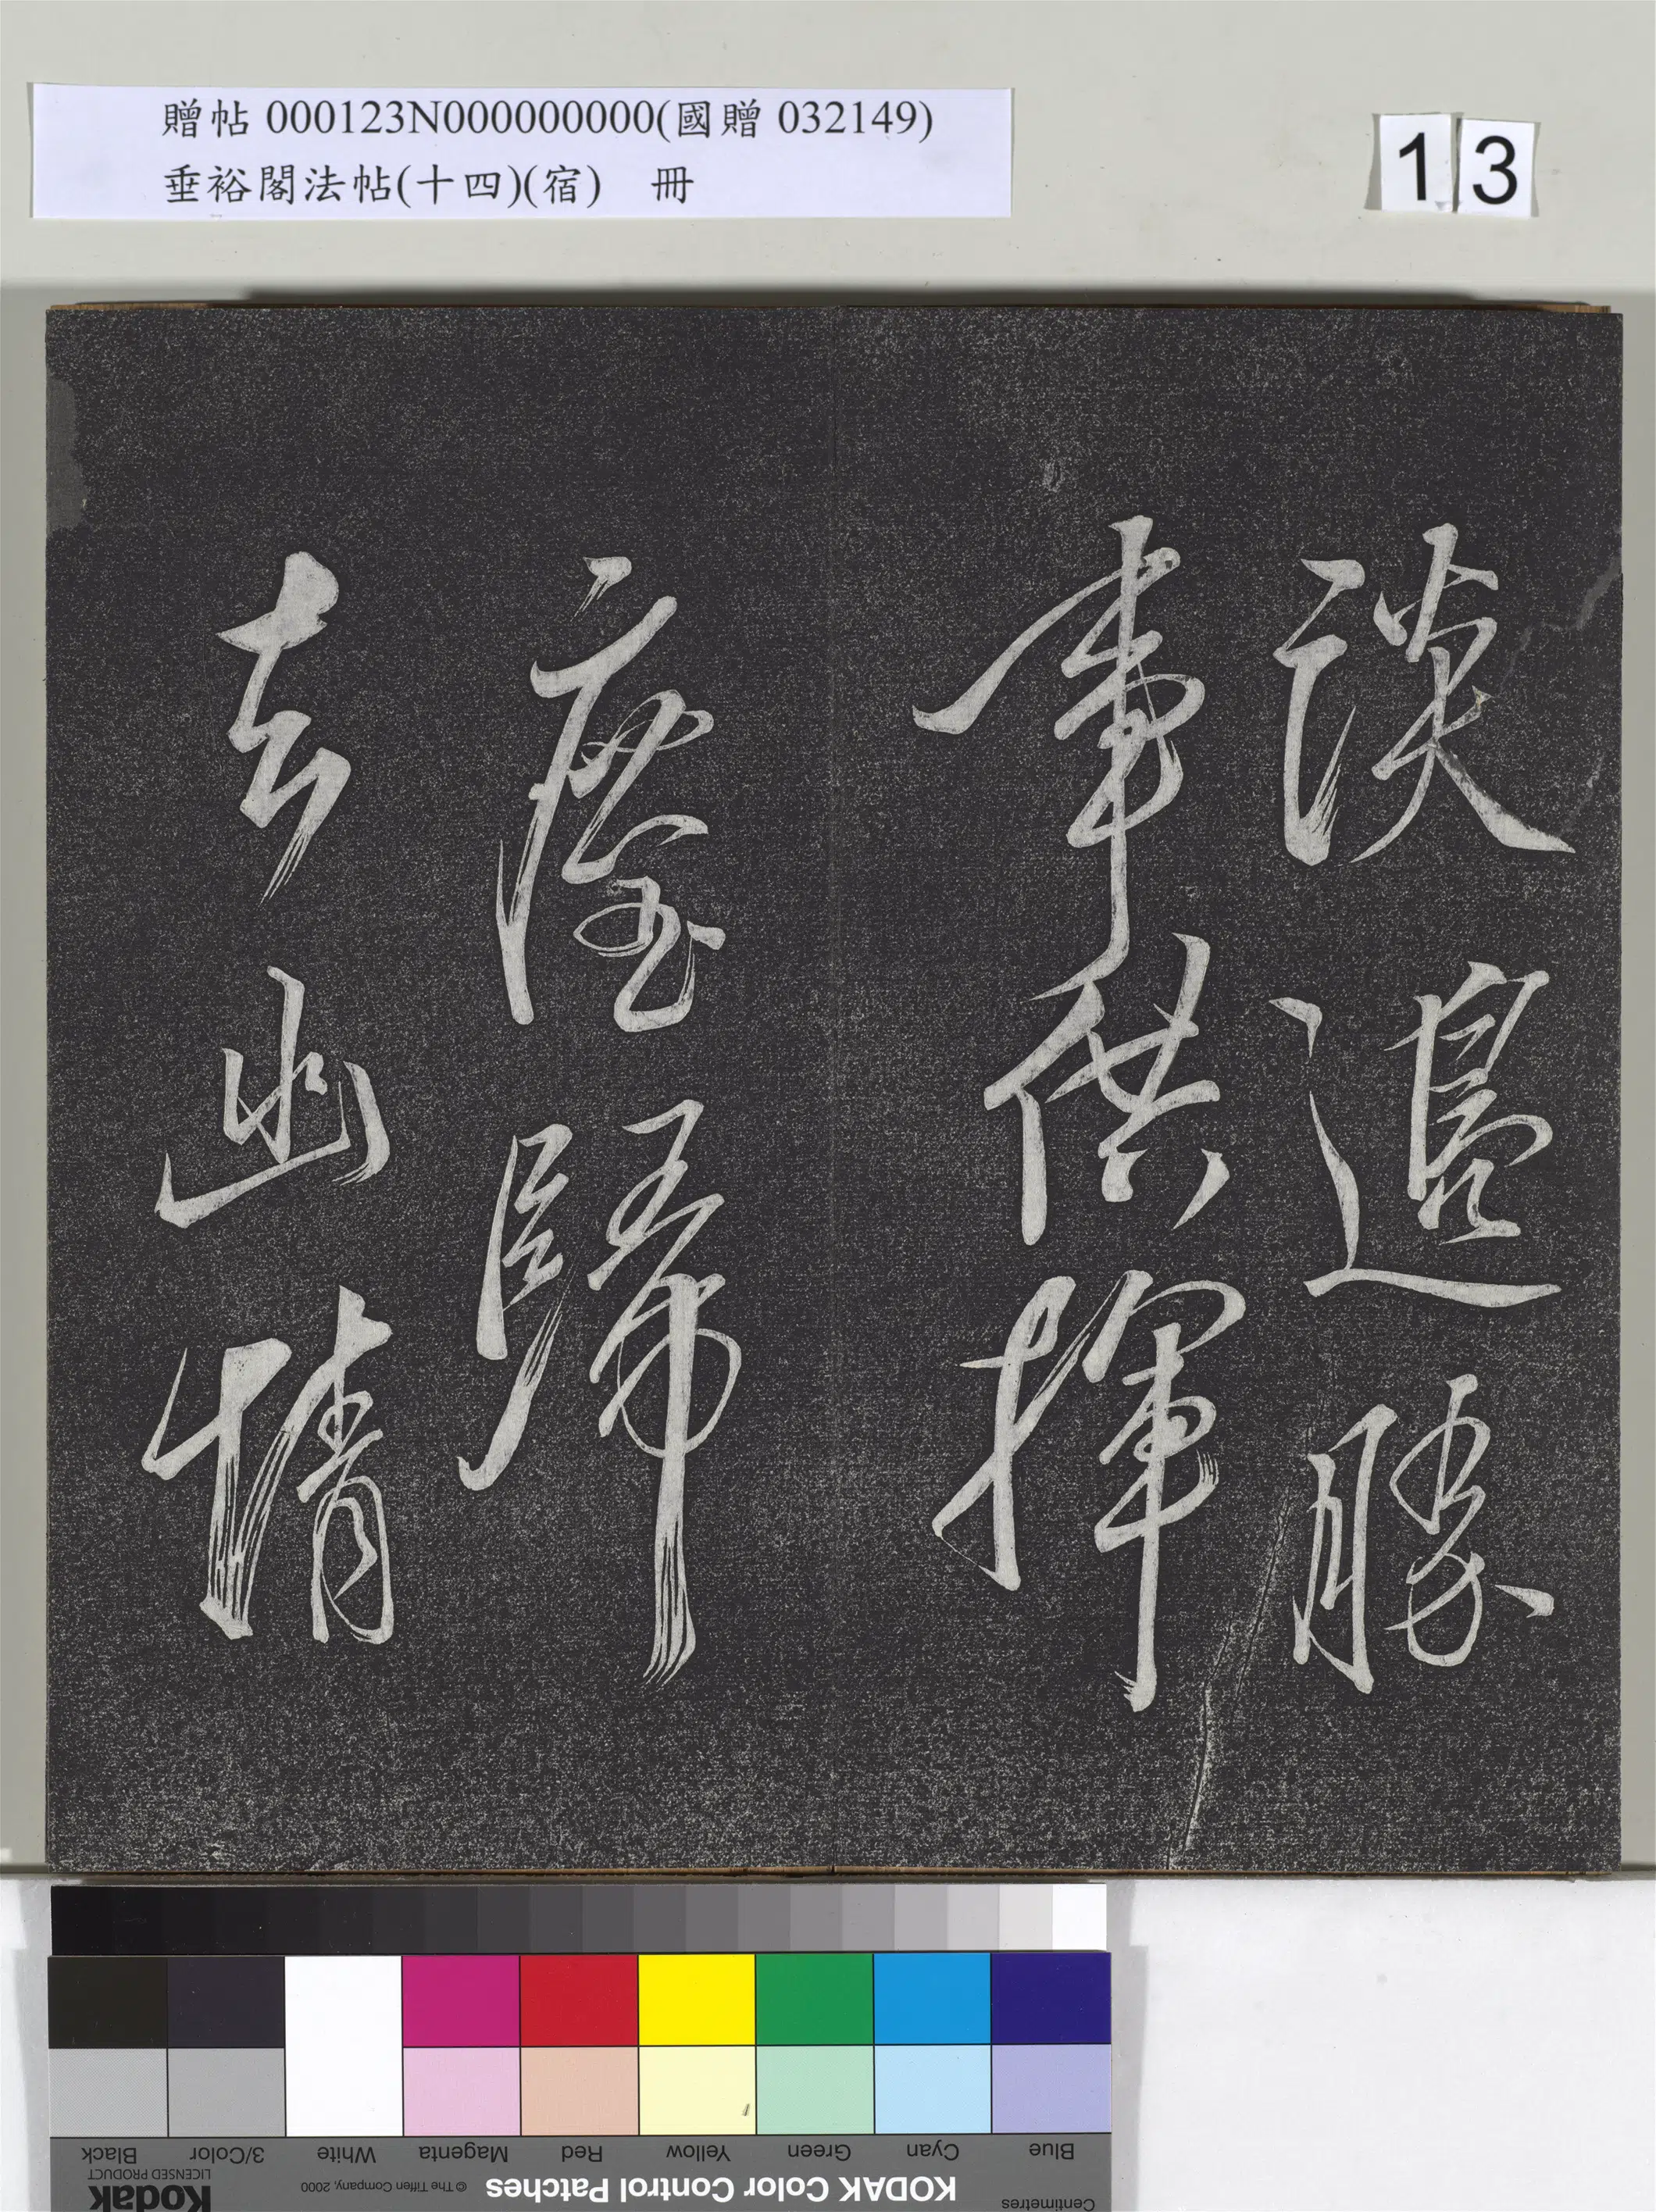 贈帖 000123N000000000(國贈 032149)
垂裕閣法帖(十四)(宿) 冊
13
談邊勝
事供揮
麈歸
去幽情
Blue Cyan Green Yellow Red Magenta White 3/Color Black
Centimetres KODAK Color Control Patches © The Tiffen Company, 2000 Kodak
LICENSED PRODUCT